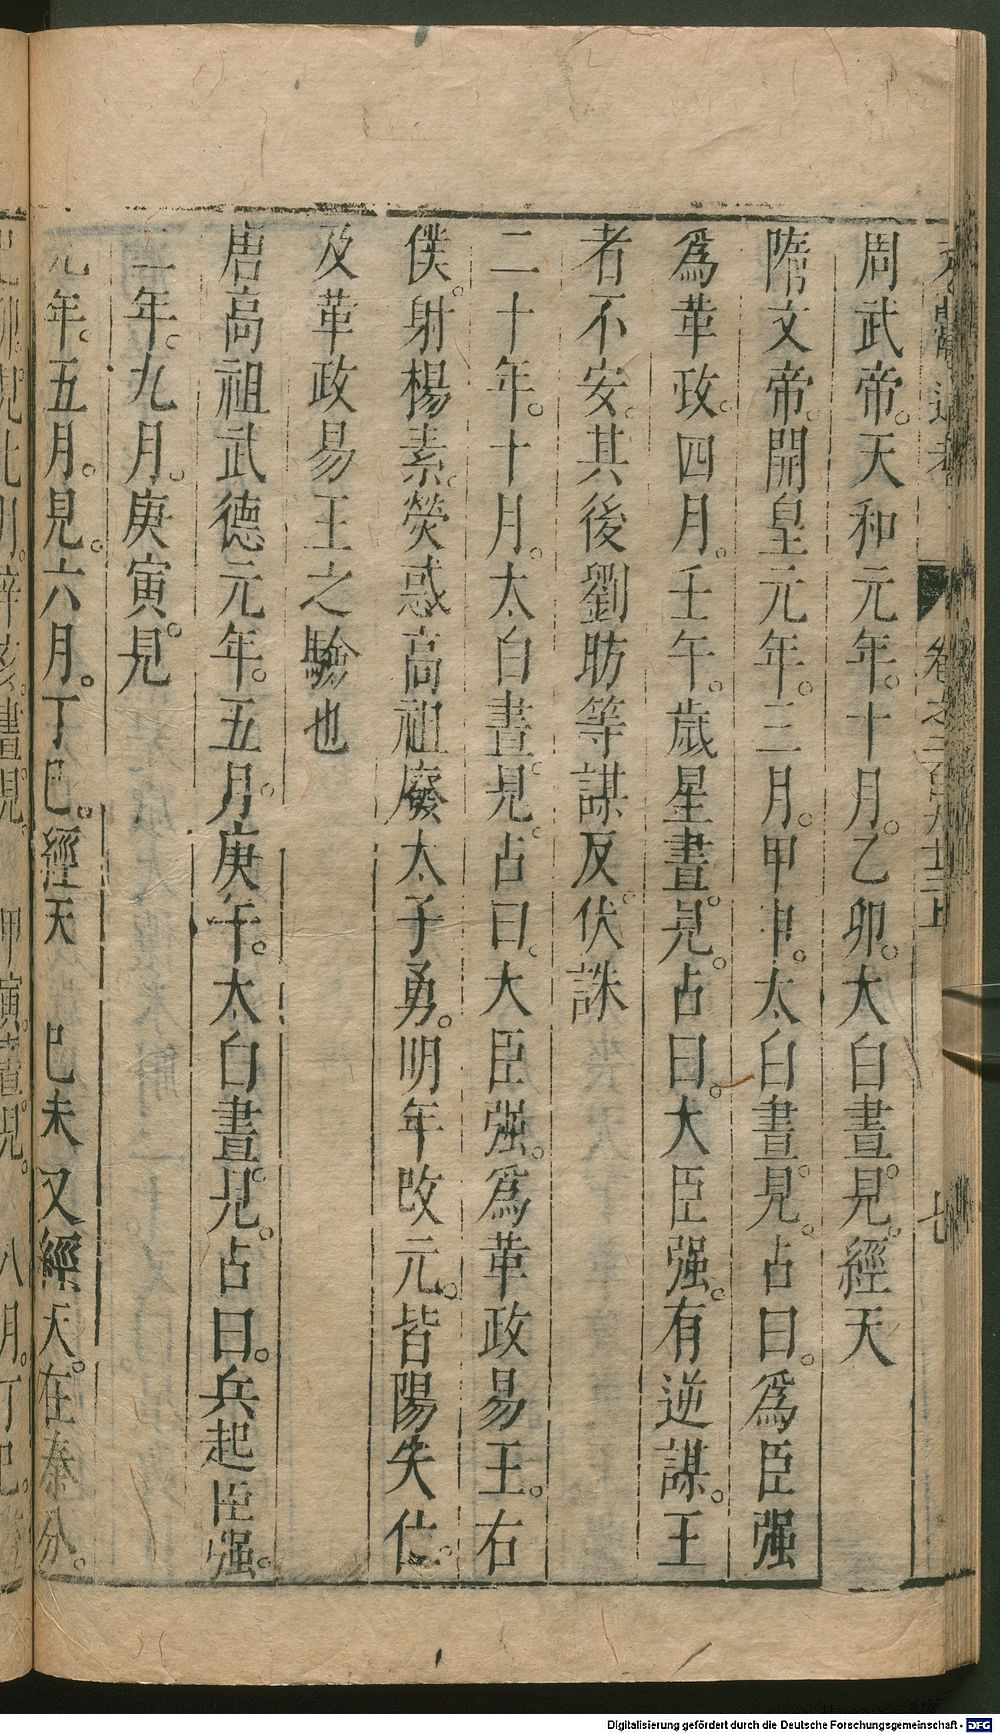 周武帝。天和元年。十月。乙卯。太白晝見。經天
隋文帝。開皇元年。三月。甲申。太白晝見。占曰。爲臣强
爲革政。四月。壬午。歲星晝見。占曰。大臣强。有逆謀。王
者不安。其後劉昉等謀反。伏誅
二十年。十月。太白晝見。占曰。大臣强。爲革政易王。右
僕。射楊素。熒惑高祖廢太子勇。明年改元。皆陽失位。
及革政易王之驗也
唐高祖武德元年。五月。庚午。太白晝見。占曰。兵起臣强。
二年。九月。庚寅。見
元年。五月。見。六月。丁巳。經天 己未 又經天。在秦分。
Digitalisierung gefördert durch die Deutsche Forschungsgemeinschaft - DFG